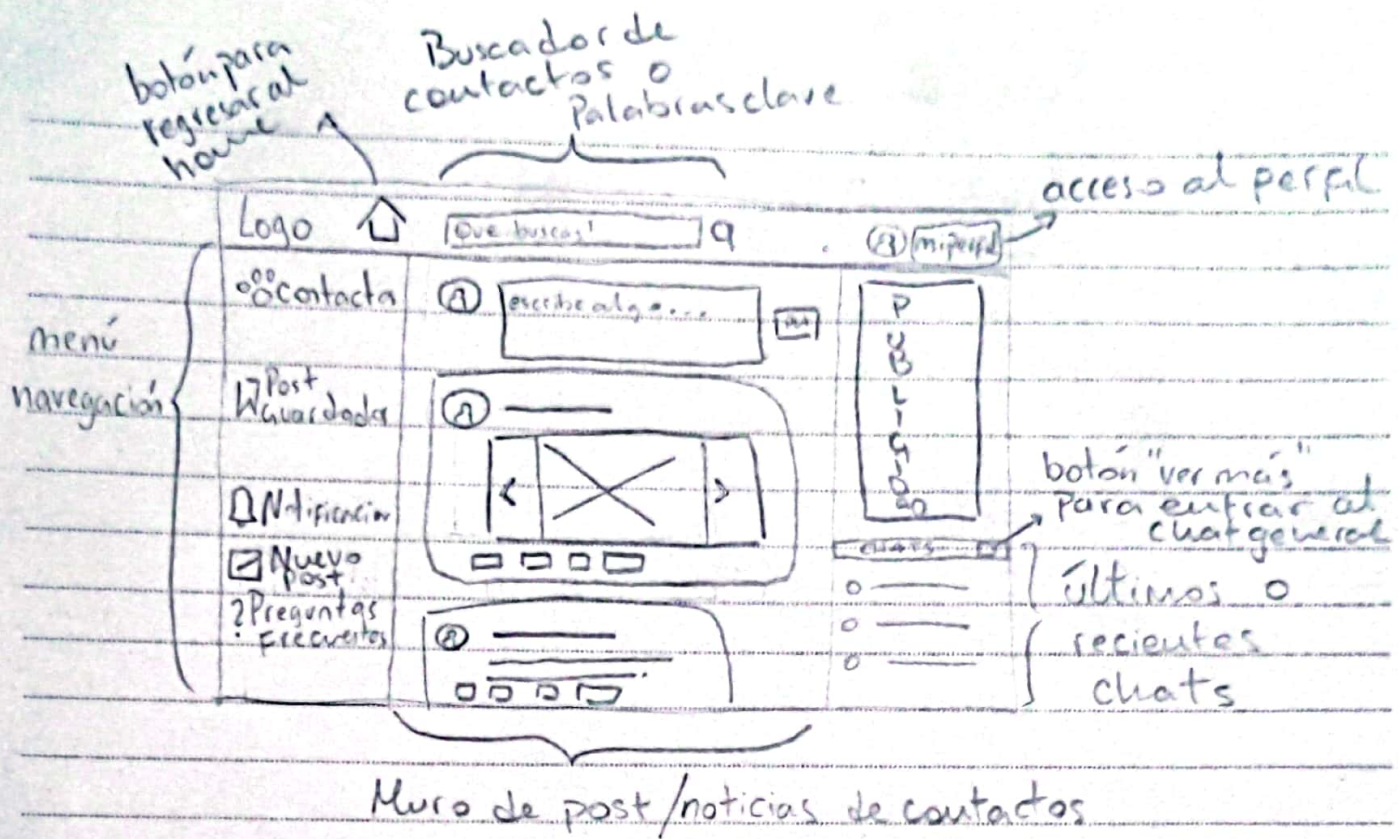 botón para
regresar al
home
Buscador de
contactos o
Palabras clave
acceso al perfil
Logo
Que buscas?
mi perfil
menú
navegación
Contacta
Post
Guardada
Notificacion
Nuevo
post
?Preguntas
Frecuentes
escribe algo....
PUBLICIDAD
botón "ver más"
para entrar al
chat general
CHATS
últimos o
recientes
chats
Muro de post/noticias de contactos